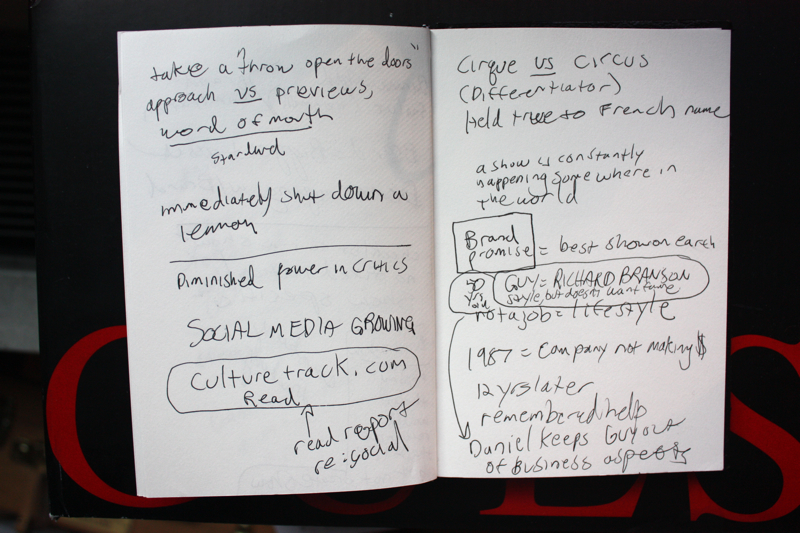 take a "throw open the doors"
approach vs previews,
word of mouth
standard
immediately shut down a
lemon
Diminished power in critics
SOCIAL MEDIA GROWING
culturetrack.com
Read
read report
re: social
Cirque vs Circus
(Differentiator)
Held true to French name
a show is constantly
happening somewhere in
the world
Brand
promise = best show on earth
50
yrs
old
GUY = RICHARD BRANSON
style, but doesn't want fame
not a job = lifestyle
1987 = Company not making $
12 yrs later
remembered help
Daniel keeps Guy out
of Business aspects